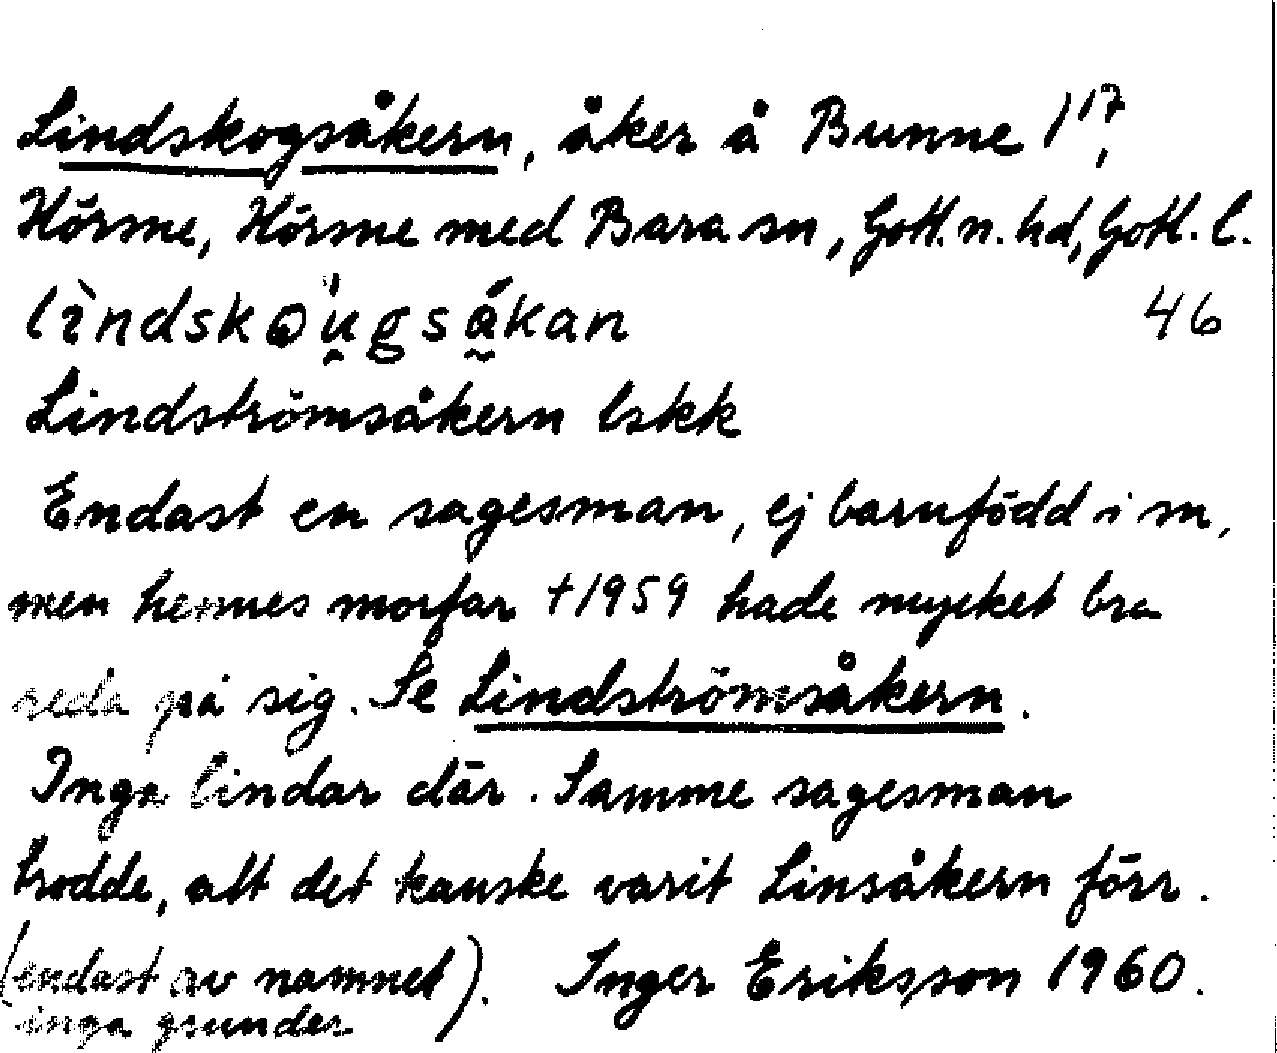 Lindskogsåkern, åker å Bunne 1¹⁷,
Hörsne, Hörsne med Bara sn, Gotl. n. hd, Gotl. l.
lìndskǫu̯gsåkan 46
Lindströmsåkern lskk
Endast en sagesman, ej barnfödd i sn,
men hennes morfar †1959 hade mycket bra
reda på sig. Se Lindströmsåkern.
Inga lindar där. Samme sagesman
trodde, att det kanske varit Linsåkern förr.
(endast av namnet). Inger Eriksson 1960.
inga grunder